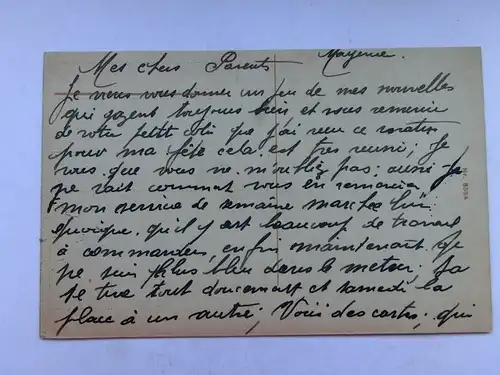 Mes chers Parents Mayence.
Je viens vous donner un peu de mes nouvelles
qui gazent toujours bien et vous remercie
de votre petit colis que j'ai recu ce matin
pour ma fête cela est très reussi; Je
vous que vous ne m'oubliez pas; aussi Je
ne sait comment vous en remercier
mon service de semaine marche
quoique qu'il y est beaucoup de travail
à commander, enfin maintenant que
je suis plus bleu dans le metier. Ja
se tire tout doucement et samedi la
place à un autre; Voici des cartes, qui
Nr. 8084